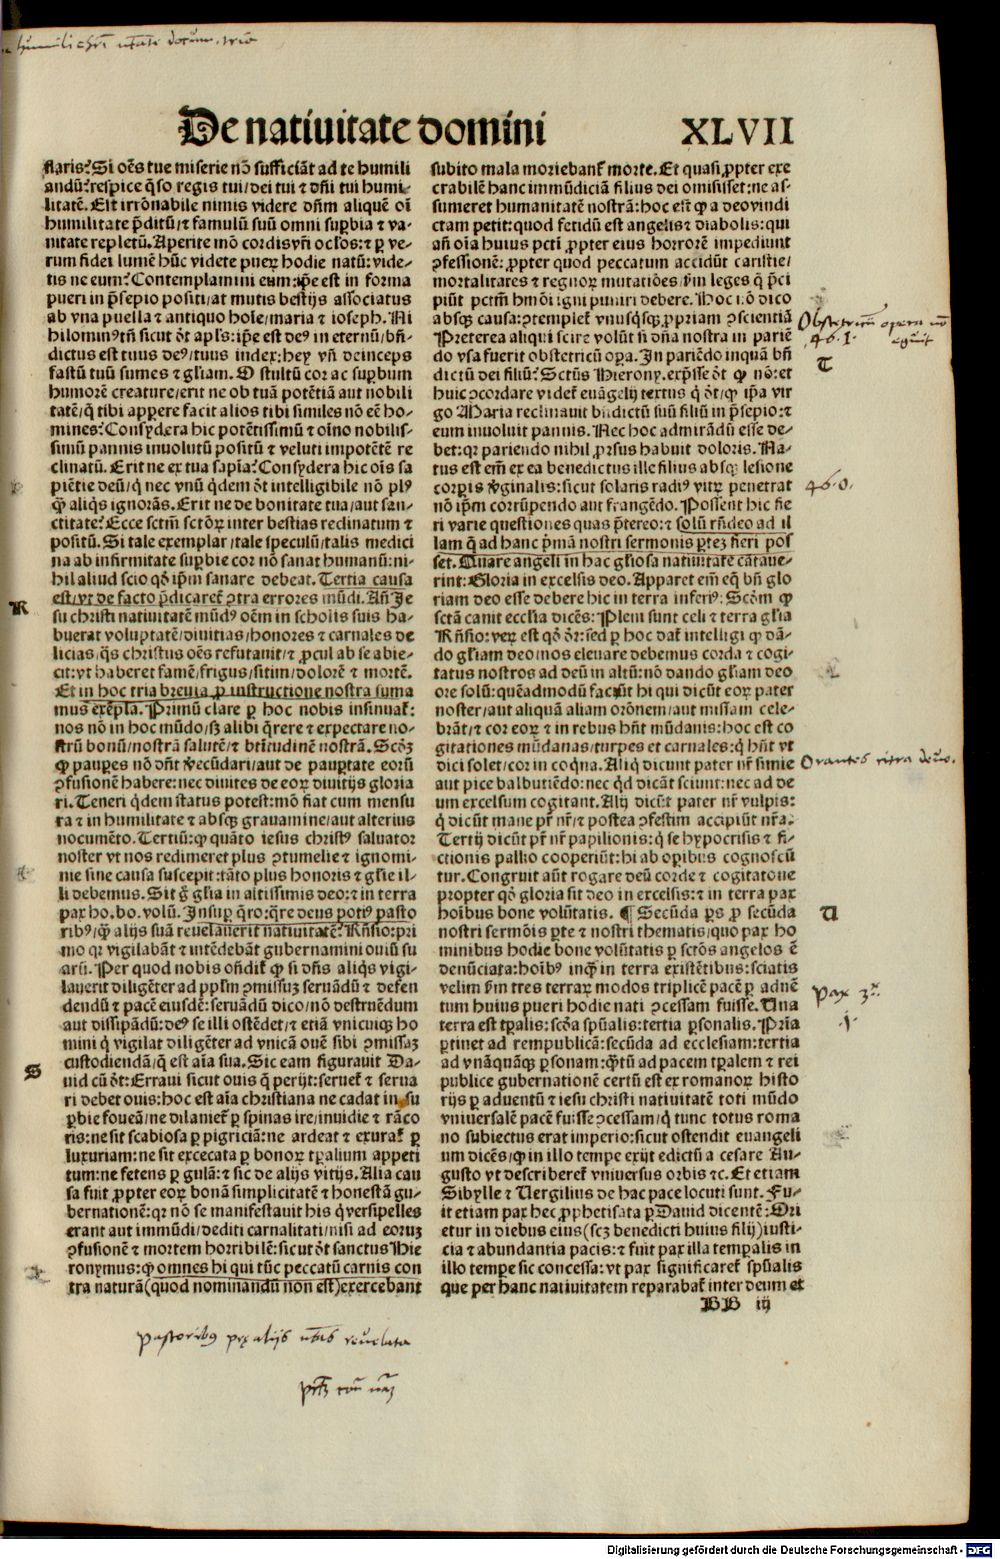 De natiuitate domini
XLVII
flaris? Si oẽs tue miserie nõ sufficiãt ad te humili
andũ? respice q̃so regis tui/dei tui ⁊ dñi tui humi⸗
litatẽ. Est irrõnabile nimis videre dñm aliquẽ oĩ
humilitate p̃ditũ/⁊ famulũ suũ omni supbia ⁊ va⸗
nitate repletũ. Aperite inõ cordis vñi oclõs: ⁊ ꝑ ve⸗
rum fidei lumẽ hũc videte pueꝝ hodie natũ: vide⸗
tis ne eum? Contemplamini eum: ip̃e est in forma
pueri in p̃sepio positi/at mutis bestijs associatus
ab vna puella ⁊ antiquo hoĩe/maria ⁊ ioseph. Ni
hilominꝰ tñ sicut õt apl̃s: ip̃e est deꝰ in eternũ/bñ⸗
dictus est tuus deꝰ/tuus iudex: hey vñ deinceps
fastũ tuũ sumes ⁊ gl̃iam. O stultũ cor ac supbum
humorẽ creature/erit ne ob tuã potẽtiã aut nobili
tatẽ/q̃ tibi appere facit alios tibi similes nõ eẽ ho⸗
mines? Consydera hic potẽtissimũ ⁊ oĩno nobilis⸗
simũ pannis inuolutũ positũ ⁊ veluti impotẽtẽ re
clinatũ. Erit ne ex tua sapĩa? Consydera hic oĩs sa
piẽtie deũ/q̃ nec vnũ q̃dem õt intelligibile nõ plꝰ
q̃ꝫ aliq̃s ignorãs. Erit ne de bonitate tua/aut san⸗
ctitate? Ecce sctm̃ sctõꝝ inter bestias reclinatum ⁊
positũ. Si tale exemplar/tale speculũ/talis medici
na ab infirmitate supbie cor nõ sanat humanũ: ni⸗
hil aliud scio qõ ip̃m sanare debeat. Tertia causa
est/vt de facto p̃dicaret ꝯtra errores mũdi. Añ Je
su christi natiuitatẽ mũdꝰ oẽm in scholis suis ha⸗
buerat voluptatẽ/diuitias/honores ⁊ carnales de
licias/q̃s christus oẽs refutauit/⁊ ꝓcul ab se abie⸗
cit: vt haberet famẽ/frigus/sitim/dolorẽ ⁊ mortẽ.
Et in hoc tria breuia ꝑ instructione nostra suma
mus exẽpla. Primũ clare ꝑ hoc nobis insinuat:
nos nõ in hoc mũdo/sꝫ alibi q̃rere ⁊ expectare no⸗
strũ bonũ/nostrã salutẽ/⁊ btĩtudinẽ nostrã. Scõꝫ
ꝙ paupes nõ dñt ṽecũdari/aut de pauptate eorũ
ꝯfusionẽ habere: nec diuites de eoꝝ diuitijs gloria
ri. Teneri q̃dem status potest: mõ fiat cum mensu
ra ⁊ in humilitate ⁊ absqꝫ grauamine/aut alterius
nocumẽto. Tertiũ: ꝙ quãto iesus christꝰ saluator
noster vt nos redimeret plus ꝯtumelie ⁊ ignomi⸗
nie sine causa suscepit: tãto plus honoris ⁊ gl̃ie il⸗
li debemus. Sit g̃ gl̃ia in altissimis deo: ⁊ in terra
pax ho. bo. volũ. Insuꝑ q̃ro: q̃re deus potiꝰ pasto
ribꝰ/q̃ꝫ alijs suã reuelauerit natiuitatẽ? Rñsio: pri
mo qꝛ vigilabãt ⁊ intẽdebãt gubernamini ouiũ su
arũ. Per quod nobis oñdit ꝙ si dñs aliq̃s vigi⸗
lauerit diligẽter ad ppl̃m ꝯmissuꝫ seruãdũ ⁊ defen
dendũ ⁊ pacẽ eiusdẽ: seruãdũ dico/nõ destruẽdum
aut dissipãdũ: deꝰ se illi ostẽdet/⁊ etiã vnicuiqꝫ ho
mini q̃ vigilat diligẽter ad vnicã ouẽ sibi ꝯmissaꝫ
custodiendã/q̃ est aĩa sua. Sic eam figurauit Da⸗
uid cũ õt: Erraui sicut ouis q̃ perijt: seruet ⁊ serua
ri debet ouis: hoc est aĩa christiana ne cadat in su
pbie foueã/ne dilaniet ꝑ spinas ire/inuidie ⁊ rãco
ris: ne sit scabiosa ꝑ pigriciã: ne ardeat ⁊ exurat ꝑ
luxuriam: ne sit excecata ꝑ bonoꝝ tp̃alium appeti
tum: ne fetens ꝑ gulã: ⁊ sic de alijs vitijs. Alia cau
sa fuit ꝓpter eoꝝ bonã simplicitatẽ ⁊ honestã gu⸗
bernationẽ: qꝛ nõ se manifestauit his q̃ versipelles
erant aut immũdi/dediti carnalitati/nisi ad eoruꝫ
ꝯfusionẽ ⁊ mortem horribilẽ: sicut õt sanctus Hie
ronymus: ꝙ omnes hi qui tũc peccatũ carnis con
tra naturã (quod nominandũ non est) exercebant
subito mala moriebant̃ morte. Et quasi ꝓpter exe
crabilẽ hanc immũdiciã filius dei omisisset: ne as⸗
sumeret humanitatẽ nostrã: hoc est ꝙ a deo vindi
ctam petit: quod fetidũ est angelis ⁊ diabolis: qui
añ oĩa huius pctĩ ꝓpter eius horrorẽ impediunt
ꝯfessionẽ: ꝓpter quod peccatum accidũt caristie/
mortalitates ⁊ regnoꝝ mutatiões/ẽm leges q̃ p̃ci
piũt pctm̃ hmõi igni puniri debere. Hoc nõ dico
absqꝫ causa: ꝯtemplet vnusq̃sqꝫ ꝓpriam ꝯscientiã
Preterea aliqui scire volũt si dña nostra in pariẽ
do vsa fuerit obstetricũ oꝑa. In pariẽdo inquã bñ
dictũ dei filiũ? Sctũs Hierony. exp̃sse õt ꝙ nõ: et
huic ꝯcordare videt̃ euãgelij textus q̃ õt/ꝙ ip̃a vir
go Maria reclinauit bñdictũ suũ filiũ in p̃sepio: ⁊
eum inuoluit pannis. Nec hoc admirãdũ esse de⸗
bet: qꝛ pariendo nihil ꝓrsus habuit doloris. Na⸗
tus est em̃ ex ea benedictus ille filius absqꝫ lesione
corpis ṽginalis: sicut solaris radiꝰ vitꝝ penetrat
nõ ip̃m corrũpendo aut frangẽdo. Possent hic fie
ri varie questiones quas p̃tereo: ⁊ solũ rñdeo ad il
lam q̃ ad hanc p̃mã nostri sermonis ꝑteꝫ fieri pos
set. Quare angeli in hac gl̃iosa natiuitate cãtaue⸗
rint: Gloria in excelsis deo. Apparet em̃ eq̃ bñ glo
riam deo esse debere hic in terra inferiꝰ: Scõm ꝙ
sctã canit eccl̃ia dicẽs: Pleni sunt celi ⁊ terra gl̃ia
Rñsio: veꝝ est qõ õr: sed ꝑ hoc dat̃ intelligi ꝙ dã⸗
do gl̃iam deo/nos eleuare debemus corda ⁊ cogi⸗
tatus nostros ad deũ in altũ: nõ dando gl̃iam deo
ore solũ: quẽadmodũ faciũt hi qui dicũt eoꝝ pater
noster/aut aliquã aliam orõnem/aut missam cele⸗
brãt/⁊ cor eoꝝ ⁊ in rebus hñt mũdanis: hoc est co
gitationes mũdanas/turpes et carnales: q̃ hñt vt
dici solet/cor in coq̃na. Aliq̃ dicunt pater nr̃ simie
aut pice balbutiẽdo: nec q̃d dicãt sciunt: nec ad de
um excelsum cogitant. Alij dicũt pater nr̃ vulpis:
q̃ dicũt mane pr̃ nr̃/⁊ postea ꝯfestim accipiũt nr̃a.
Tertij dicũt pr̃ nr̃ papilionis: q̃ se hypocrisis ⁊ fi⸗
ctionis pallio cooperiũt: hi ab opibus cognoscũ
tur. Congruit aũt rogare deũ corde ⁊ cogitatone
propter qõ gloria sit deo in excelsis: ⁊ in terra pax
hoĩbus bone volũtatis. ¶ Secũda ꝑs ꝓ secũda
nostri sermõis ꝑte ⁊ nostri thematis/quo pax ho
minibus hodie bone volũtatis ꝑ sctõs angelos ẽ
denũciata: hoĩbꝰ inq̃ꝫ in terra existẽtibus: sciatis
velim ẽm tres terraꝝ modos triplicẽ pacẽ ꝑ aduẽ
tum huius pueri hodie nati ꝯcessam fuisse. Una
terra est tp̃alis: scõa sp̃ualis: tertia ꝑsonalis. Pria
ꝑtinet ad rempublicã: secũda ad ecclesiam: tertia
ad vnãquãqꝫ ꝑsonam: q̃tũ ad pacem tp̃alem ⁊ rei
publice gubernationẽ certũ est ex romanoꝝ histo
rijs ꝑ aduentũ ⁊ iesu christi natiuitatẽ toti mũdo
vniuersalẽ pacẽ fuisse ꝯcessam/q̃ tunc totus roma
no subiectus erat imperio: sicut ostendit euangeli
um dicẽs/ꝙ in illo tempe exijt edictũ a cesare Au⸗
gusto vt describeret̃ vniuersus orbis ⁊c. Et etiam
Sibylle ⁊ Uergilius de hac pace locuti sunt. Fu⸗
it etiam pax hec ꝓphetisata ꝑ Dauid dicentẽ: Ori
etur in diebus eius (scꝫ benedicti huius filij) iusti⸗
cia ⁊ abundantia pacis: ⁊ fuit pax illa tempalis in
illo tempe sic concessa: vt pax significaret̃ sp̃ualis
que per hanc natiuitatem reparabat̃ inter deum et
BB iij
R
S
T
U
Obstetricũ opera nõ
eguit
46.1.
46.0.
Orantes citra deuo.
Pax 3ˣ.
.1.
pastoribus prę alijs
reuelata
Digitalisierung gefördert durch die Deutsche Forschungsgemeinschaft - DFG